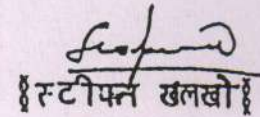 स्टीफन खलखो